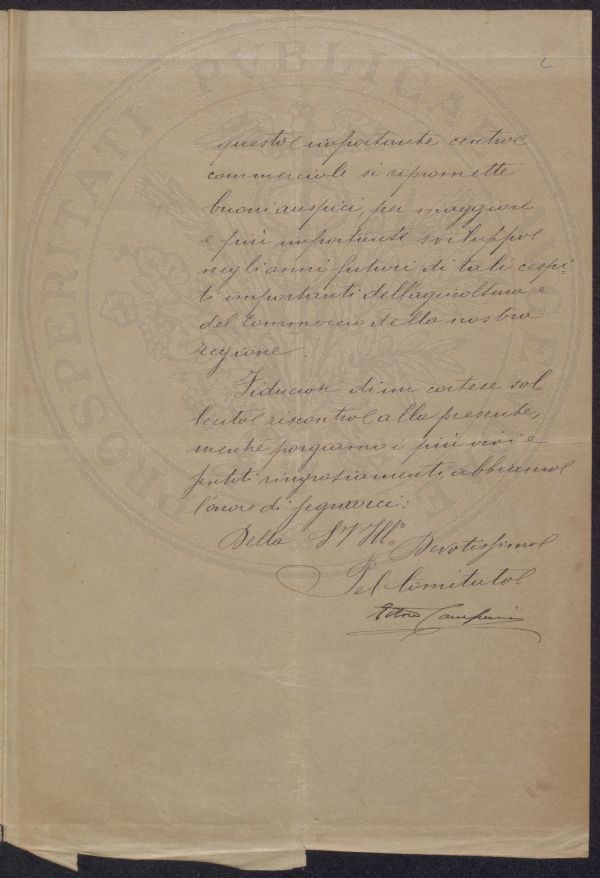 questo importante centro
commerciale si ripromette
buoni auspici, per maggiore
e più importante sviluppo
negli anni futuri di tali cespi-
ti importanti dell'agricoltura e
del Commercio della nostra
regione.
Fiduciosi di un cortese sol
lecito riscontro alla presente,
mentre porgiamo i più vivi e
sentiti ringraziamenti, abbiamo
l'onore di segnarci:
Della S V Ill.
Devotissimo
Pel Comitato
PROSPERITATI PVBLICAE